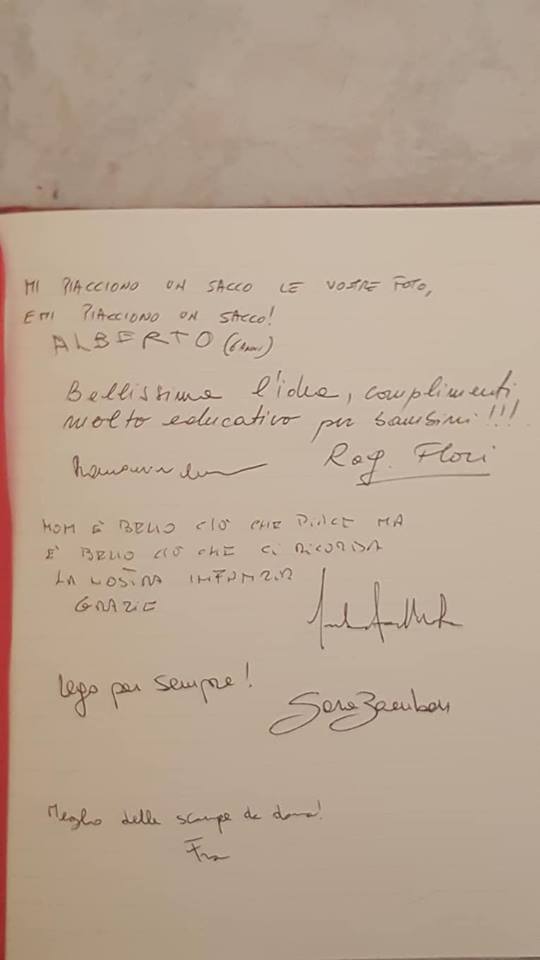 MI PIACCIONO UN SACCO LE VOSTRE FOTO,
E MI PIACCIONO UN SACCO!
ALBERTO (6 ANNI)
Bellissima l'idea, complimenti
molto educativo per bambini!!!
Rag. Flori
NON È BELLO CIÒ CHE PIACE MA
È BELLO CIÒ CHE CI RICORDA
LA NOSTRA INFANZIA
GRAZIE
Lego per sempre!
Sara Zambon
Meglio delle scarpe da donna!
Fra